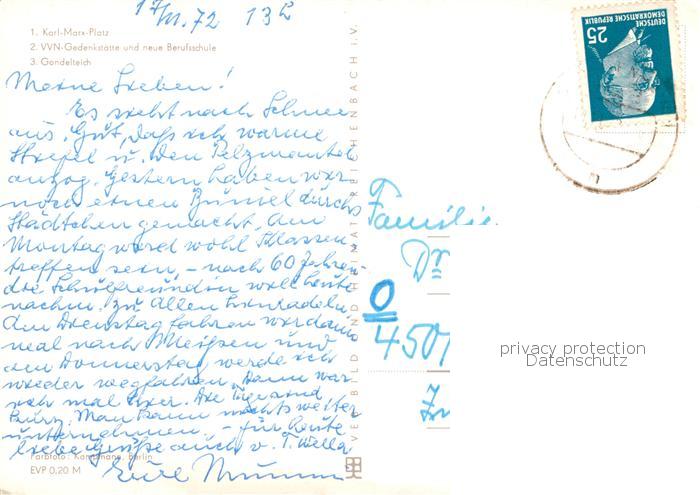 17/XI. 72 13h
1. Karl-Marx-Platz
2. VVN-Gedenkstätte und neue Berufsschule
3. Gondelteich
Meine Lieben!
Es sieht nach Schnee
aus. Gut, daß ich warme
Stiefel u. den Pelzmantel
anzog. Gestern haben wir
noch einen Bummel durchs
Städtchen gemacht. Am
Montag wird wohl Klassen-
treffen sein, – nach 60 Jahren
die Schulfreundin will heute
nachm. zu allen
Am Dienstag fahren wir dann
mal nach Meißen und
am Donnerstag werde ich
wieder wegfahren. Dann war
ich mal hier. Die Tage sind
kurz. Man kann nichts weiter
unternehmen. – für heute
liebe Grüße auch v. T. Wella
Eure
Farbfoto: Kant, Berlin
EVP 0,20 M
VERLAG BILD UND HEIMAT REICHENBACH i. V.
DEUTSCHE
DEMOKRATISCHE REPUBLIK
25
Familie
Dr
O
4501
privacy protection
Datenschutz